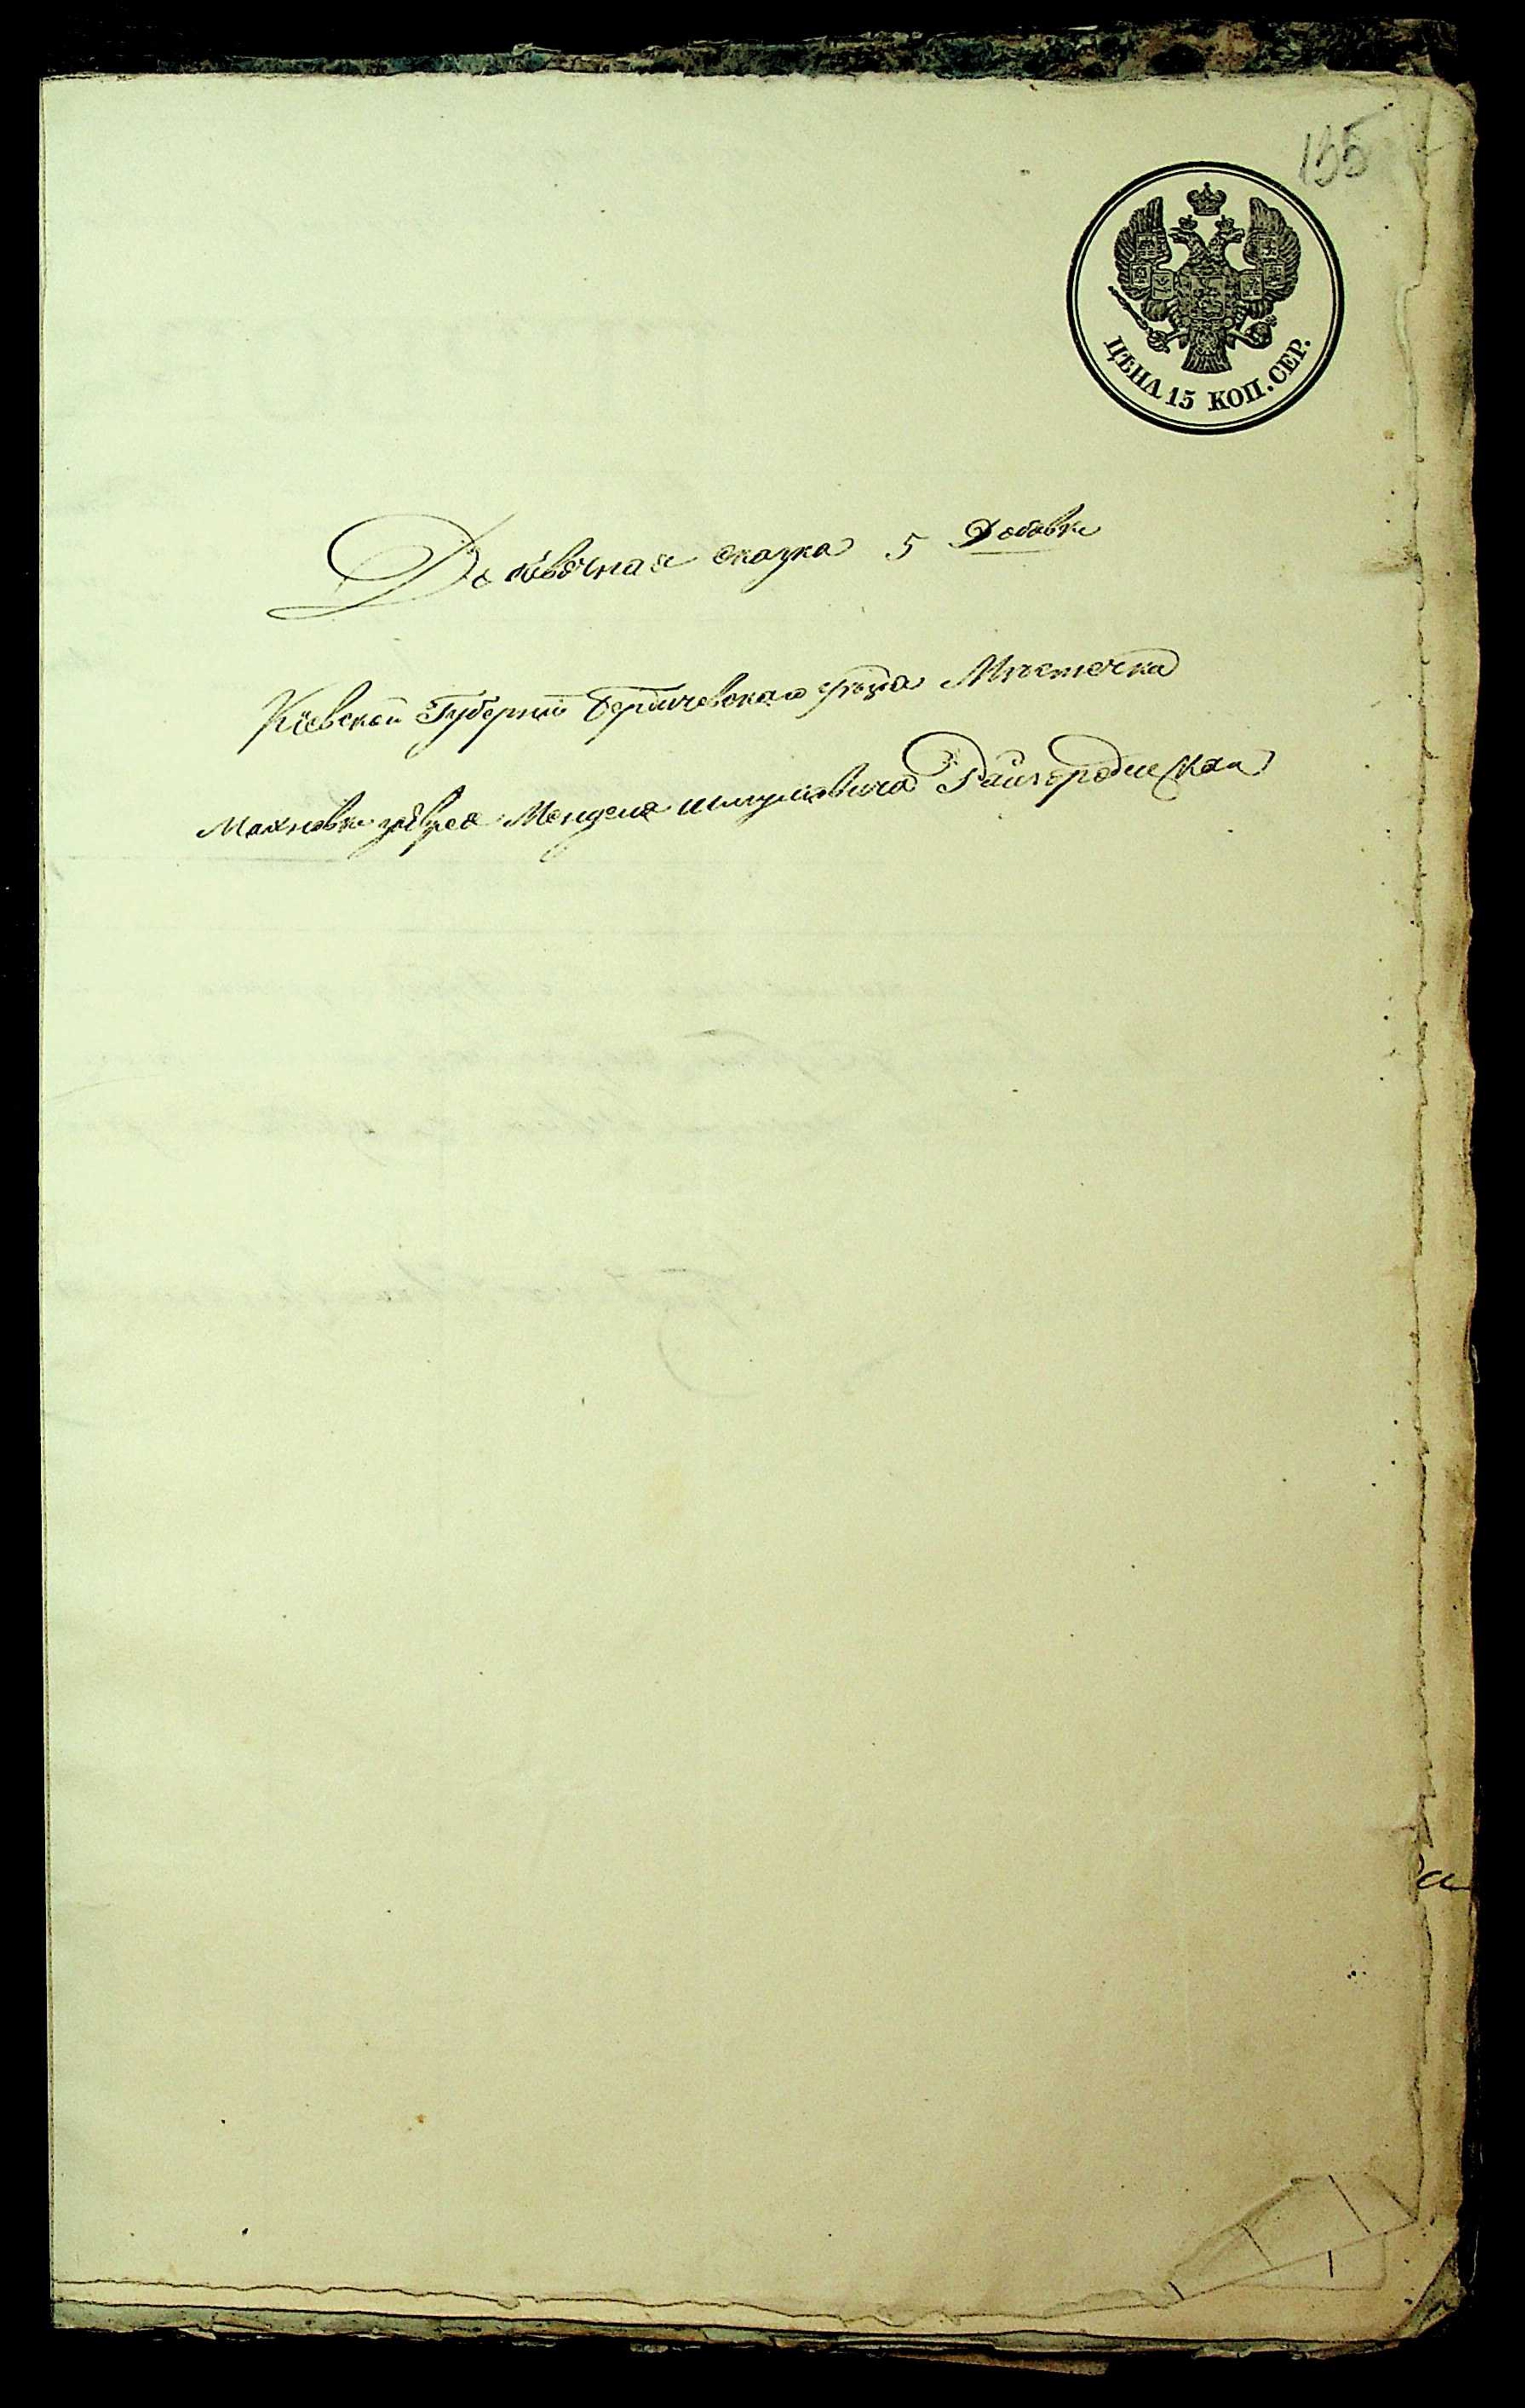 155
ЦѢНА 15 КОП. СЕР.
Добавочная сказка 5 Добавки
Кіевской Губерніи Бердичевскаго уѣзда Мѣстечка
Махновки Менделя Шмулевича Райгородецкаго